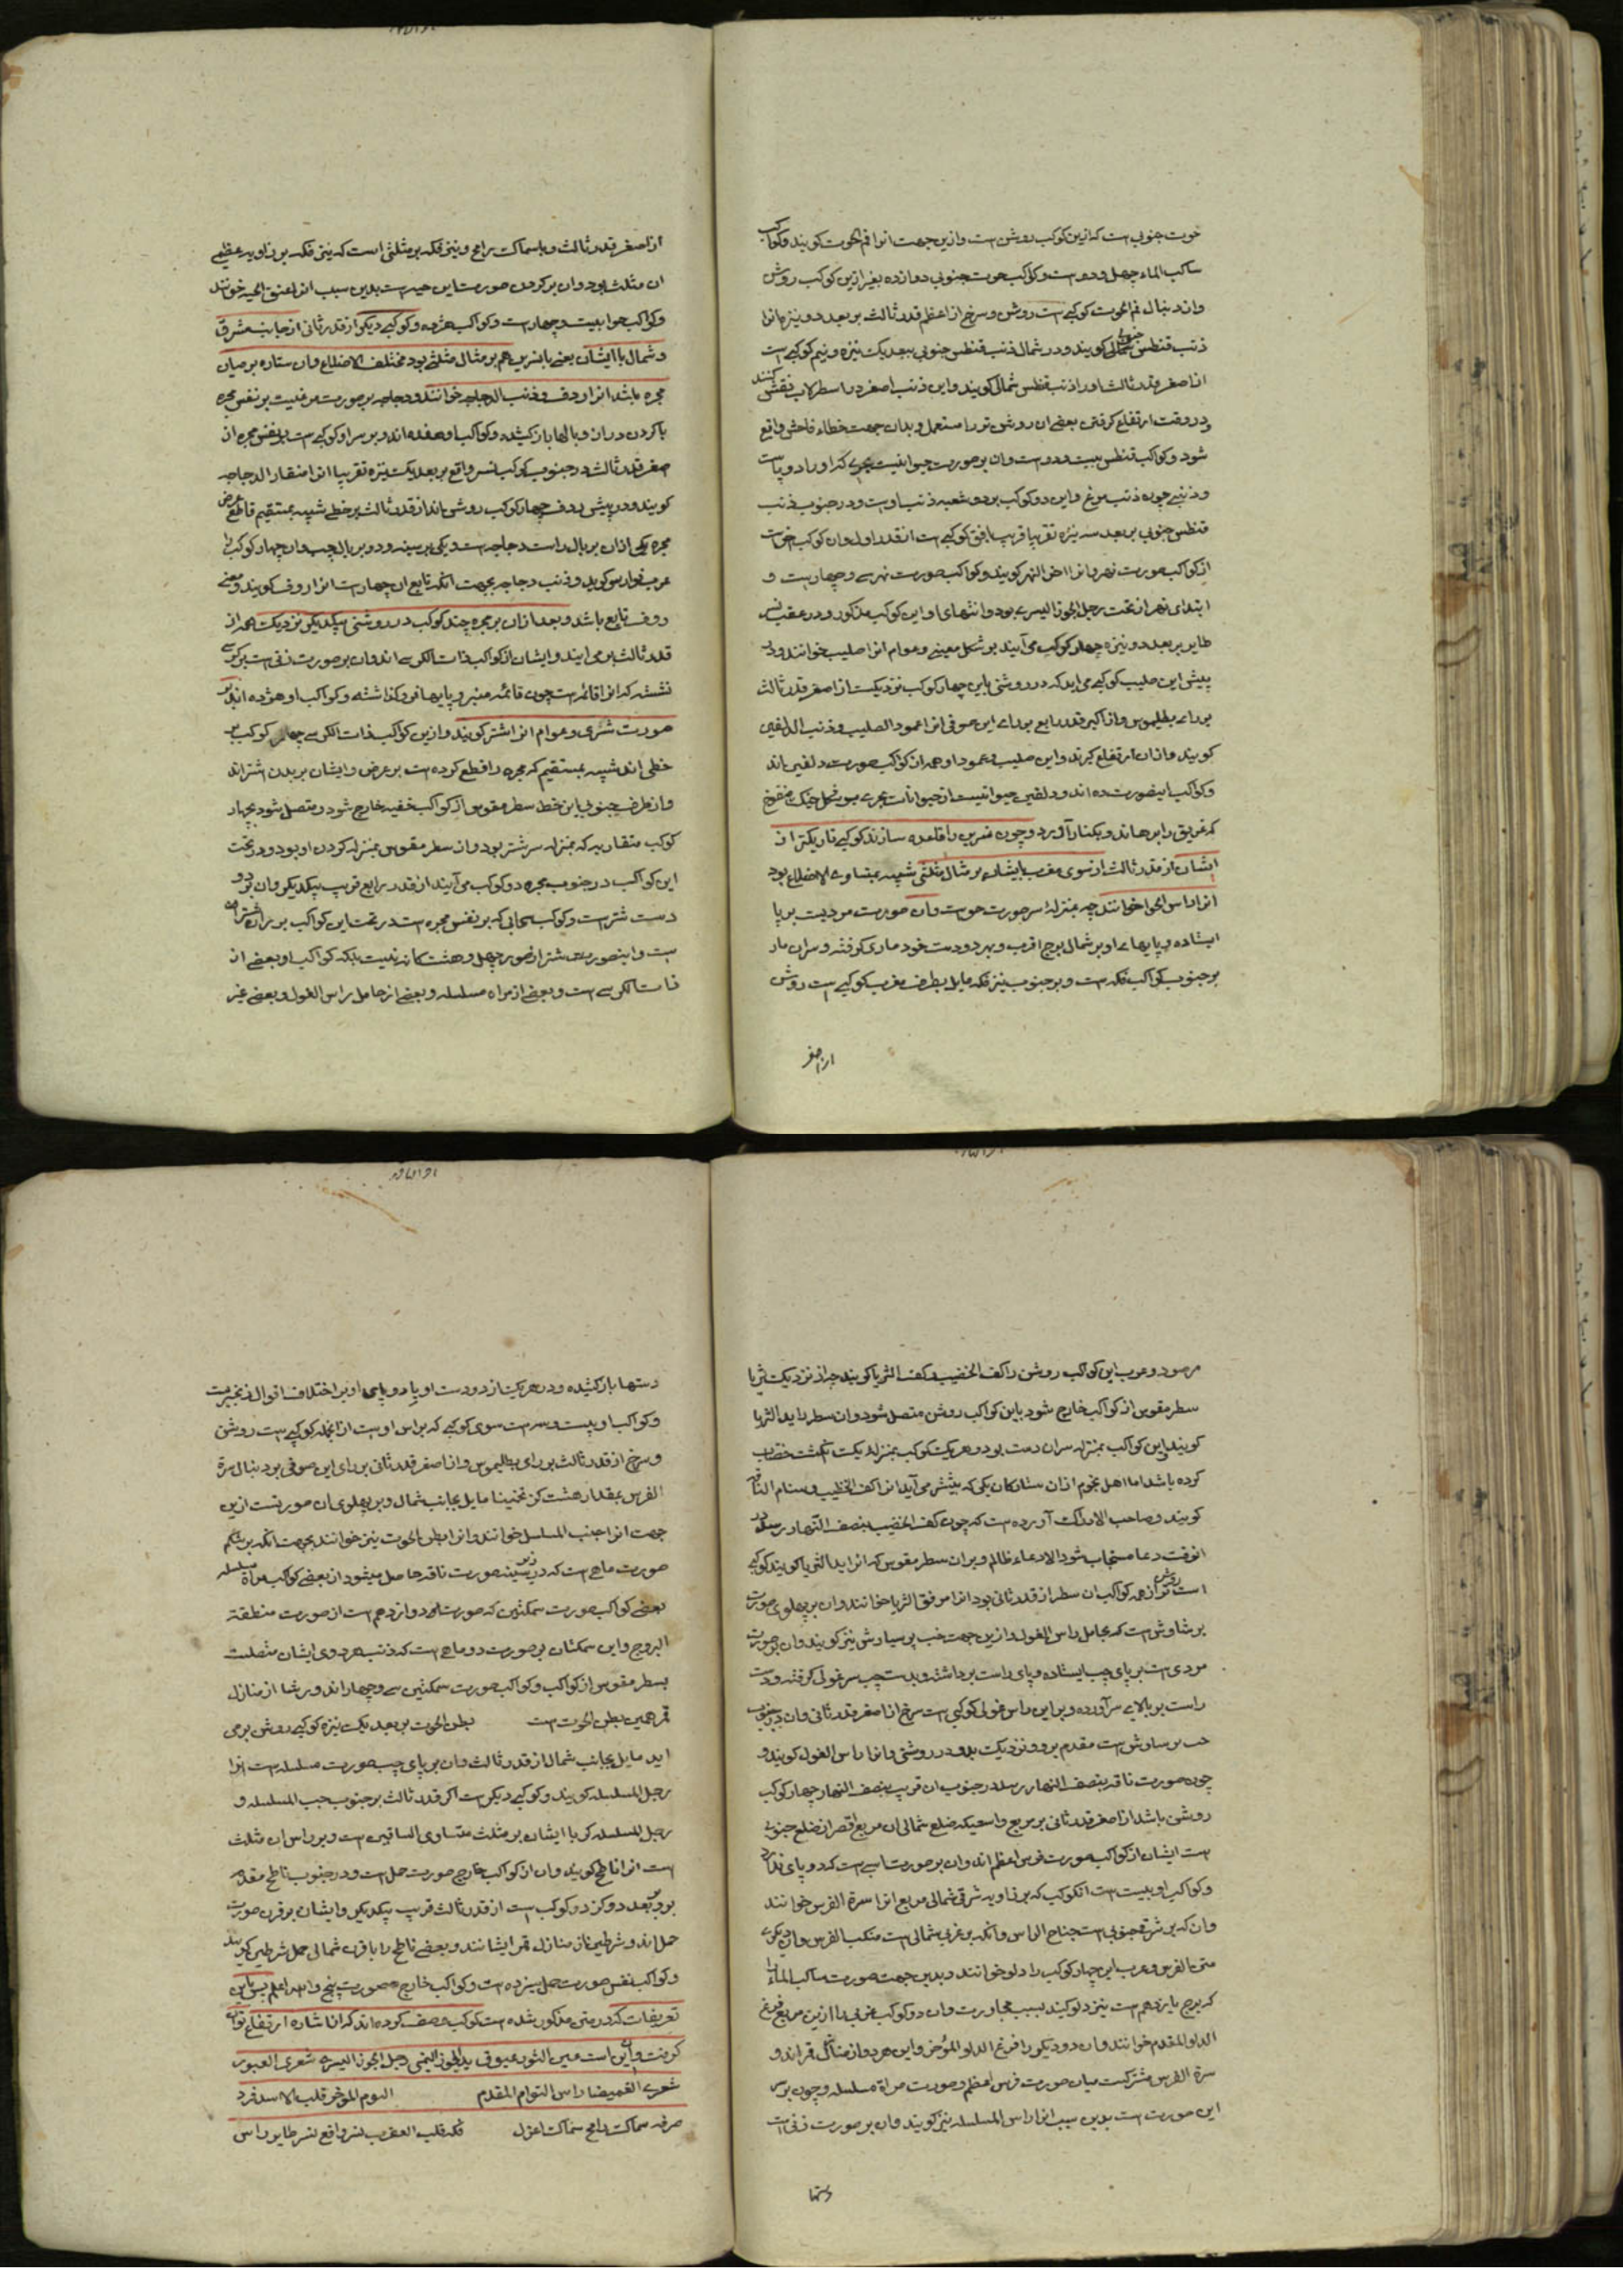 حوت جنوبی است که ازین کوکب روشن است و ازین جهت انرا فم الحوت کویند و کواکب
ساکب الماء چهل و دو است و کواکب حوت جنوبی دوازده بغیر ازین کوکب روشن
و از دنبال فم الحوت کوکبی است روشن و سرخ از اعظم قدر ثالث بر بعد دو نیزه انرا
ذنب قنطس جنوبی کویند و در شمال ذنب قنطس جنوبی ببعد یک نیزه و نیم کوکبی است
از اصغر قدر ثالث اورا ذنب قنطس شمالی کویند و این ذنب اصغر در اسطرلاب نقش کنند
و در وقت ارتفاع کرفتن بعضی ان روشن تر را مستعمل و بدان جهت خطاء فاحش واقع
شود و کواکب قنطس بیست و دو است و ان بر صورت حیوانیست بحری که اورا دو پا است
و ذنبی چون ذنب مرغ و این دو کوکب بر دو شعبه ذنب اوست و در جنوب ذنب
قنطس جنوبی بر بعد سه نیزه تقریبا قریب بافق کوکبی است از قدر اول و ان کوکب اخر است
از کواکب صورت نهر و انرا اخر النهر کویند و کواکب صورت نهر سی و چهار است و
ابتدای نهر از تحت رجل الجوزا الیسری بود و انتهای او این کوکب مذکور و در عقب نسر
طایر بر بعد دو نیزه چهار کوکب می آیند بر شکل معینی و عوام انرا صلیب خوانند و در
پیش این صلیب کوکبی می اید که در روشنی باین چهار کوکب نزدیکست از اصغر قدر ثالث
برای بطلیموس و از اکبر قدر رابع برای ابن صوفی انرا عمود الصلیب و ذنب الدلفین
کویند و از ان ارتفاع کیرند و این صلیب و عمود او همه از کواکب صورت دلفین اند
و کواکب اینصورت ده اند و دلفین حیوانیست از حیوانات بحری بر شکل خیک منفوخ
که غریق را برهاند و بکنار آورد و چون نسرین را قاعده سازند کوکبی تاریکتر از
ایشان از قدر ثالث از سوی مغرب بایشان بر مثال مثلثی شبیه بمتساوی الاضلاع بود
انرا راس الحوا خوانند چه بمنزله سر صورت حواست و ان صورت مردیست بر پا
ایستاده و پایهاء او بر شمال برج عقرب و بهر دو دست خود ماری کرفته و سر ان مار
بر جنوب کواکب فکه است و بر جنوب نیر فکه مایل بطرف مغرب کوکبی است روشن
از اصغر
از اصغر قدر ثالث و با سماک رامح و نیر فکه بر مثلثی است که نیر فکه بر زاویه عظمی
ان مثلث بود و ان بر کردن صورت این حیه است بدین سبب انرا عنق الحیه خوانند
و کواکب حوا بیست و چهار است و کواکب حیه هژده و کوکبی دیکر از قدر ثانی از جانب مشرق
و شمال با ایشان یعنی با نسرین هم بر مثال مثلثی بود مختلف الاضلاع و ان ستاره بر میان
مجره باشد انرا ردف و ذنب الدجاجه خوانند و دجاجه بر صورت مرغیست بر نفس مجره
با کردن دراز و بالها باز کشیده و کواکب او هفده اند و بر سر او کوکبی است بر نفس مجره از
اصغر قدر ثالث در جنوب کوکب نسر واقع بر بعد یک نیزه تقریبا انرا منقار الدجاجه
کویند و در پیش ردف چهار کوکب روشن اند از قدر ثالث بر خطی شبیه بمستقیم قاطع عرض
مجره یکی از ان بر بال راست دجاجه است و یکی بر سینه و دو بر بال چپ و ان چهار کوکب را
عرب فوارس کوید و ذنب دجاجه بجهت انکه تابع ان چهار است انرا ردف کویند و معنی
ردف تابع باشد و بعد از ان بر مجره چند کوکب در روشنی بیکدیکر نزدیک همه از
قدر ثالث بر می ایند و ایشان از کواکب ذات الکرسی اند و ان بر صورت زنی است بر کرسی
نشسته که انرا قائمه است چون قائمه منبر و پایها فرو کذاشته و کواکب او هژده اند بر
صورت شتری و عوام انرا اشتر کویند و ازین کواکب ذات الکرسی چهار کوکب بر
خطی اند شبیه بمستقیم که مجره را قطع کرده است بر عرض و ایشان بر بدن اشتر اند
و از طرف جنوبی این خط سطر مقوس از کواکب خفیه خارج شود و متصل شود بچهار
کوکب متقاربه که بمنزله سر شتر بود و ان سطر مقوس بمنزله کردن او بود و در تحت
این کواکب در جنوب مجره دو کوکب می آیند از قدر رابع قریب بیکدیکر و ان بر دو
دست شتر است و کوکب سحابی که بر نفس مجره است در تحت این کواکب بر ران شتر
است و اینصورت شتر از صور چهل و هشت کانه نیست بلکه کواکب او بعضی از
ذات الکرسی است و بعضی از مراه مسلسله و بعضی از حامل راس الغول و بعضی غیر
مرصود و عرب این کواکب روشن را کف الخضیب و کف الثریا کویند چه از نزدیک ثریا
سطر مقوس از کواکب خارج شود باین کواکب روشن متصل شود و ان سطر را ید الثریا
کویند و این کواکب بمنزله سر ان دست بود و هر یک کوکب بمنزله یک انکشت خضاب
کرده باشد اما اهل نجوم از ان ستارکان یکی که پیشتر می آید انرا کف الخضیب و سنام الناقه
کویند و صاحب الادراک آورده است که چون کف الخضیب بنصف النهار رسد در
انوقت دعا مستجاب شود الا دعاء ظالم و بر ان سطر مقوس که انرا ید الثریا کویند کوکبی
است روشن تر از همه کواکب ان سطر از قدر ثانی بود انرا مرفق الثریا خوانند و ان بر پهلوی صورت
برشاوش است که بحامل راس الغول و ازین جهت جنب برسیاوش نیز کویند و ان بر صورت
مردی است بر پای چپ ایستاده و پای راست برداشته و بدست چپ سر غولی کرفته و دست
راست بر بالای سر آورده و بر این راس غولی کوکبی است سرخ از اصغر قدر ثانی و ان در جنوب
جنب برساوش است مقدم بر وو نزدیک بدو در روشنی و انرا راس الغول کویند و
چون صورت ناقه بنصف النهار رسد در جنوب ان قریب بنصف النهار چهار کوکب
روشن باشد از اصغر قدر ثانی بر مربع واسعی که ضلع شمالی ان مربع اقصر از ضلع جنوبی
است ایشان از کواکب صورت فرس اعظم اند و ان بر صورت اسبی است که دو پای ندارد
و کواکب او بیست است انکوکب که بر زاویه شرقی شمالی مربع انرا سرة الفرس خوانند
و ان که بر شرقی جنوبی است جناح الفرس و انکه بر غربی شمالی است منکب الفرس و ان دیکری
متن الفرس و عرب این چهار کوکب را دلو خوانند و بدین جهت صورت ساکب الماء را
که برج یازدهم است نیز دلو کویند بسبب مجاورت و ان دو کوکب غربی را ازین مربع فرغ
الدلو المقدم خوانند و ان دو دیکر را فرغ الدلو المؤخر و این هر دو از منازل قمر اند و
سرة الفرس مشترکست میان صورت فرس اعظم و صورت مراة مسلسله و چون بر سر
این صورت است بدین سبب انرا راس المسلسله نیز کویند و ان بر صورت زنی است
دستها
دستها باز کشیده و در هر یک از دو دست او یا دو پای او بر اختلاف اقوال زنجیریست
و کواکب او بیست و سه است سوی کوکبی که بر راس اوست از انجمله کوکبی است روشن
و سرخ از قدر ثالث برای بطلیموس و از اصغر قدر ثانی برای ابن صوفی بر دنبال سرة
الفرس بمقدار هشت کز تخمینا مایل بجانب شمال و بر پهلوی ان صورتست ازین
جهت انرا جنب المسلسل خوانند و انرا بطن الحوت نیز خوانند بجهت انکه بر شکم
صورت ماهی است که در زیر سینه صورت ناقه حاصل میشود از بعضی کواکب مراة مسلسله
بعضی کواکب صورت سمکتین که صورت دوازدهم است از صورت منطقة
البروج و این سمکتان بر صورت دو ماهی است که ذنب هر دوی ایشان متصلست
بسطر مقوس از کواکب و کواکب صورت سمکتین سی و چهار اند و رشا از منازل
قمر همین بطن الحوت است بطن الحوت بر بعد یک نیزه کوکبی روشن بر می
اید مایل بجانب شمال از قدر ثالث و ان بر پای چپ صورت مسلسله است انرا
رجل المسلسله کویند و کوکبی دیکر است اکبر قدر ثالث بر جنوب جنب المسلسله و
رجل المسلسله که با ایشان بر مثلث متساوی الساقین است و بر راس ان مثلث
است انرا ناطح کویند و ان از کواکب خارج صورت حمل است و در جنوب ناطح مقدم
برو ببعد دو کز دو کوکب است از قدر ثالث قریب بیکدیکر و ایشان بر قرن صورت
حمل اند و شرطین از منازل قمر ایشانند و بعضی ناطح را با قرن شمالی حمل شرطین کویند
و کواکب نفس صورت حمل سیزده است و کواکب خارج صورت پنج و الله اعلم پس باین
تعریفات که در متن مذکور شده است کوکب وصف کرده اند که از اشاره ارتفاع توان
کرفت و ان این است عین الثور عیوق ید الجوزا الیمنی رجل الجوزا الیسری شعری العبور
شعری الغمیضا راس التوام المقدم التوم المؤخر قلب الاسد فرد
صرفه سماک رامح سماک اعزل فکه قلب العقرب نسر واقع نسر طایر راس